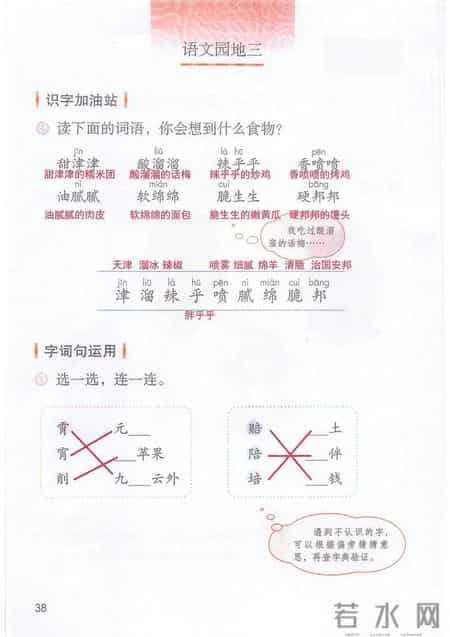 语文园地三
识字加油站
读下面的词语，你会想到什么食物？
jīn liū là hū pēn
甜津津 酸溜溜 辣乎乎 香喷喷
甜津津的糯米团 酸溜溜的话梅 辣乎乎的炒鸡 香喷喷的烤鸡
nì mián cuì bāng
油腻腻 软绵绵 脆生生 硬邦邦
油腻腻的肉皮 软绵绵的面包 脆生生的嫩黄瓜 硬邦邦的馒头
我吃过酸溜
溜的话梅……
天津 溜冰 辣椒 喷雾 细腻 绵羊 清脆 治国安邦
jīn liū là hū pēn nì mián cuì bāng
津 溜 辣 乎 喷 腻 绵 脆 邦
胖乎乎
字词句运用
选一选，连一连。
霄 元___ 赔 ___土
宵 ___苹果 陪 ___伴
削 九___云外 培 ___钱
遇到不认识的字，
可以根据偏旁猜猜意
思，再查字典验证。
38
若水网